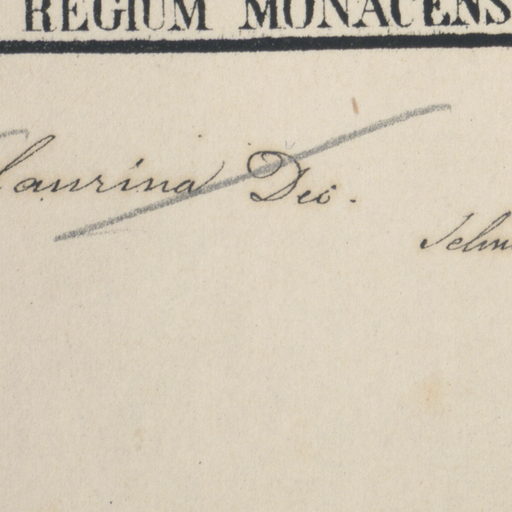 REGIUM MONACENS
laurina Dec.
Selm